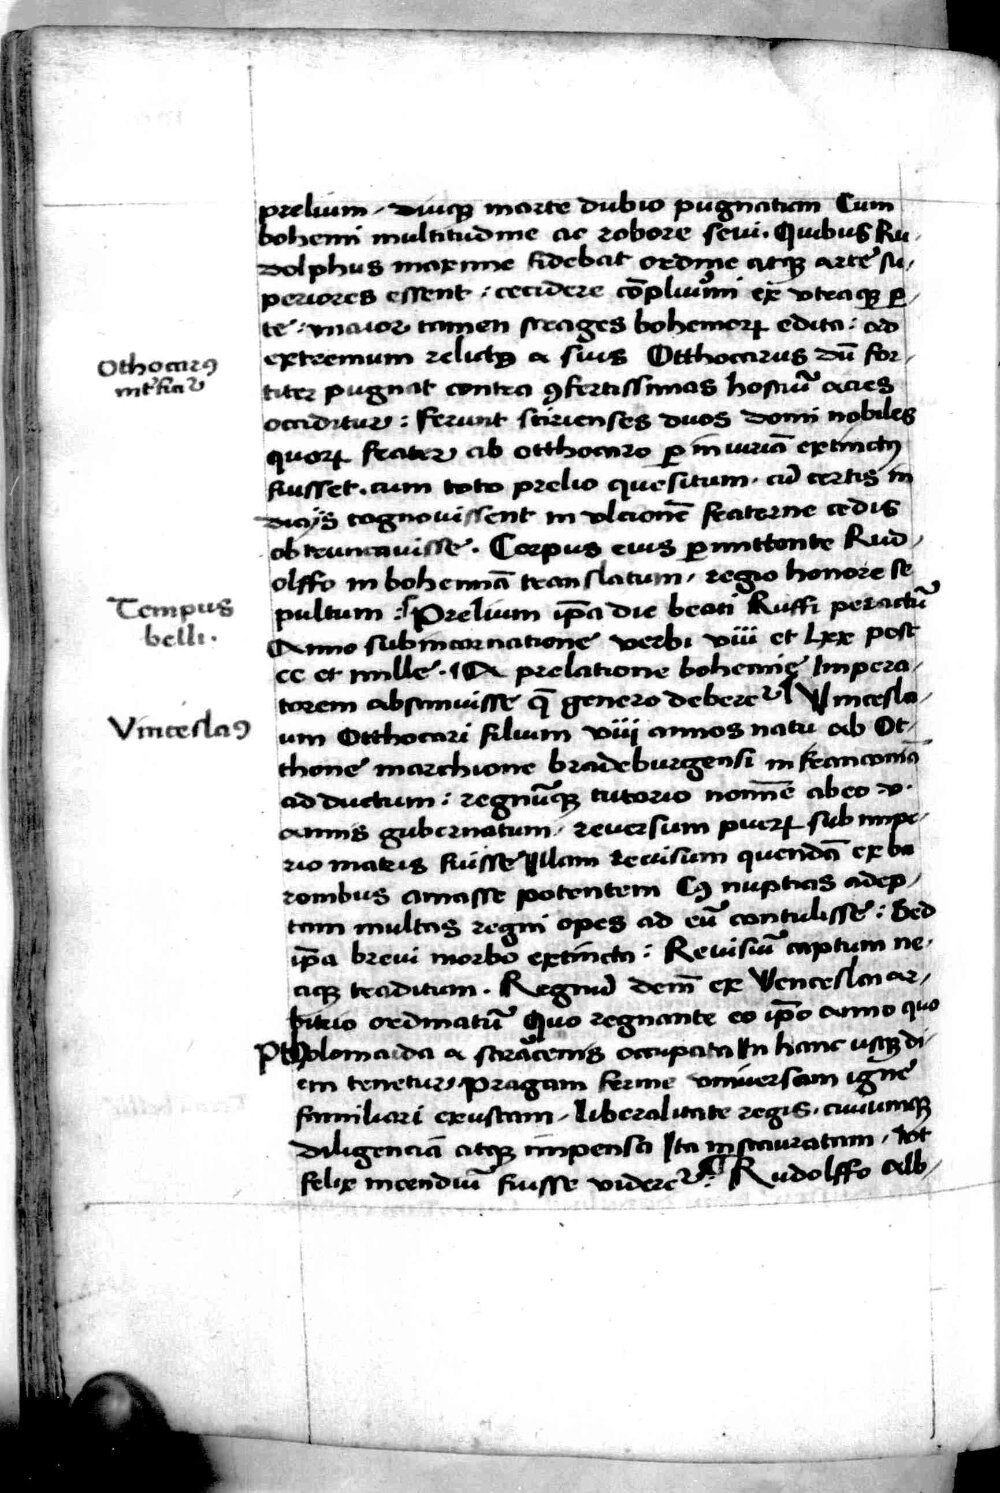 prelium, diuqꝫ marte dubio pugnatum Cum
bohemi multitudine ac robore seui. Quibus Ru,
dolphus maxime fidebat ordine atqꝫ arte su,
periores essent : cecidere cōplurimi ex vtraqꝫ ꝑ,
te : maior tamen strages bohemorꝝ edita : ad
extremum relictꝰ a suis Otthocarus dū for,
titer pugnat contra ꝯfertissimas hostiū acies
occiditur : Ferunt stirienses duos domi nobiles
quorꝝ frater ab otthocaro ꝑ iniuriā extinctꝰ
fuisset. cum toto prelio quesitum. cū certis in
dicijs cognouissent in vlcionē fraterne cedis
obtruncauisse. Corpus eius ꝑmittente Rud,
olffo in bohemiā translatum, regio honore se
pultum : Prelium ip̄a die beati Ruffi peractū
Anno subincarnatione verbi viii et Lxx post
cc et mille. A prelatione bohemie Impera,
torem abstinuisse q̄ genero deberet᷑ Vincesla,
um Otthocari filium viii annos natu ab Ot,
thone marchione brādeburgensi in franconiā
ad ductum : regnūqꝫ tutorio nomīe ab eo v.
annis gubernatum, reuersum puerꝝ sub impe,
rio matris fuisse Illam reuisum quendā ex ba
ronibus amasse potentem Cꝰ nuptias adep,
tam multas regni opes ad eū contulisse : Sed
ip̄a breui morbo extincta : Reuisiū captum ne,
ciqꝫ traditum. Regnū dem̄ ex Venceslai ar,
bitrio ordinatū Quo regnante eo ip̄o anno quo
Ptholomaida a sarracenis occupata In hanc usqꝫ di,
em tenetur. Pragam ferme vniuersam igne
familiari exustam, liberalitate regis. ciuiumqꝫ
diligenciā atqꝫ impensa Ita instauratam, vt
felix incendiū fuisse videret᷑ : Rudolffo Alb,
Othocarꝰ
int᷑ficit᷑
Tempus
belli.
Vinceslaꝰ